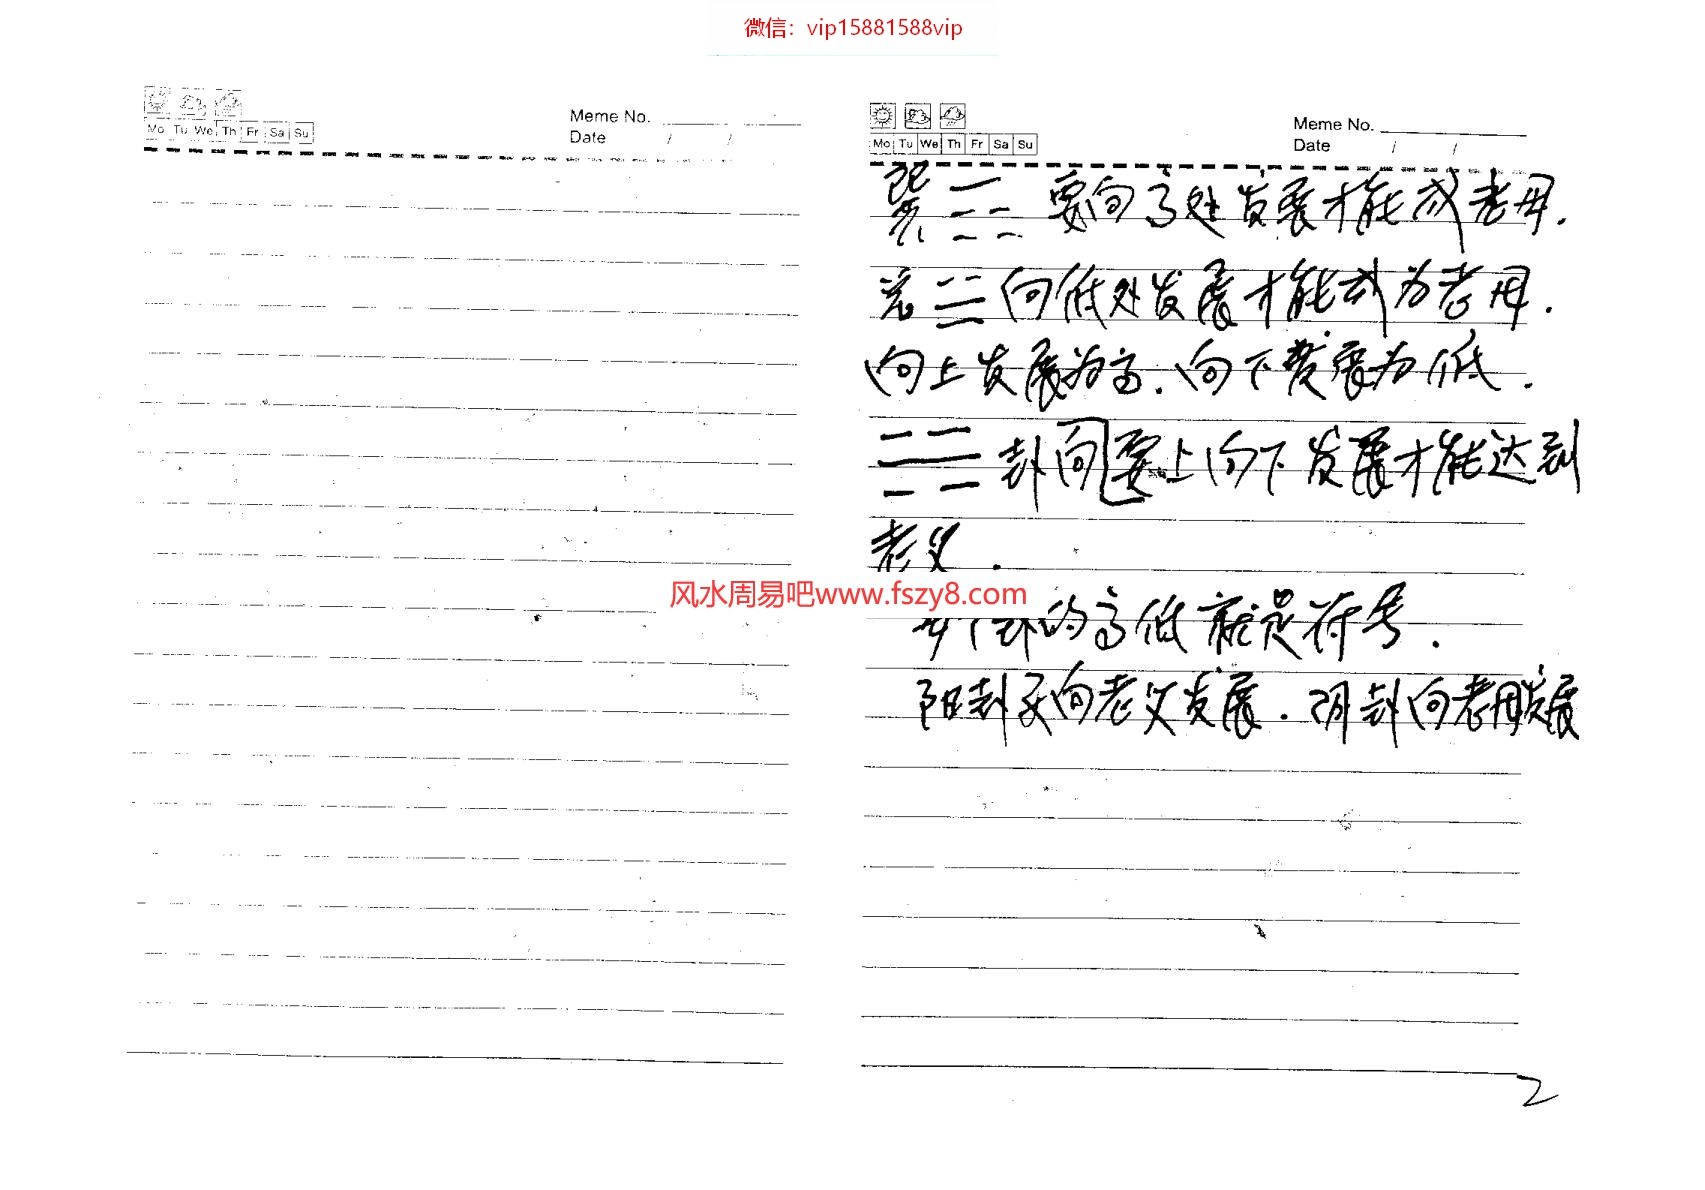 微信：vip15881588vip
Meme No.
Date / /
Mo Tu We Th Fr Sa Su
Meme No.
Date / /
Mo Tu We Th Fr Sa Su
巽 ☴ 要向高处发展才能成老母.
兑 ☱ 向低处发展才能成为老母.
向上发展为高.向下发展为低.
卦向要上向下发展才能达到
老父.
风水周易吧www.fszy8.com
卦的高低就是符号.
阳卦要向老父发展.阴卦向老母发展
2